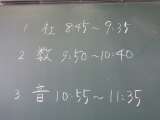 1 社 8:45〜9:35
2 数 9:50〜10:40
3 音 10:55〜11:35